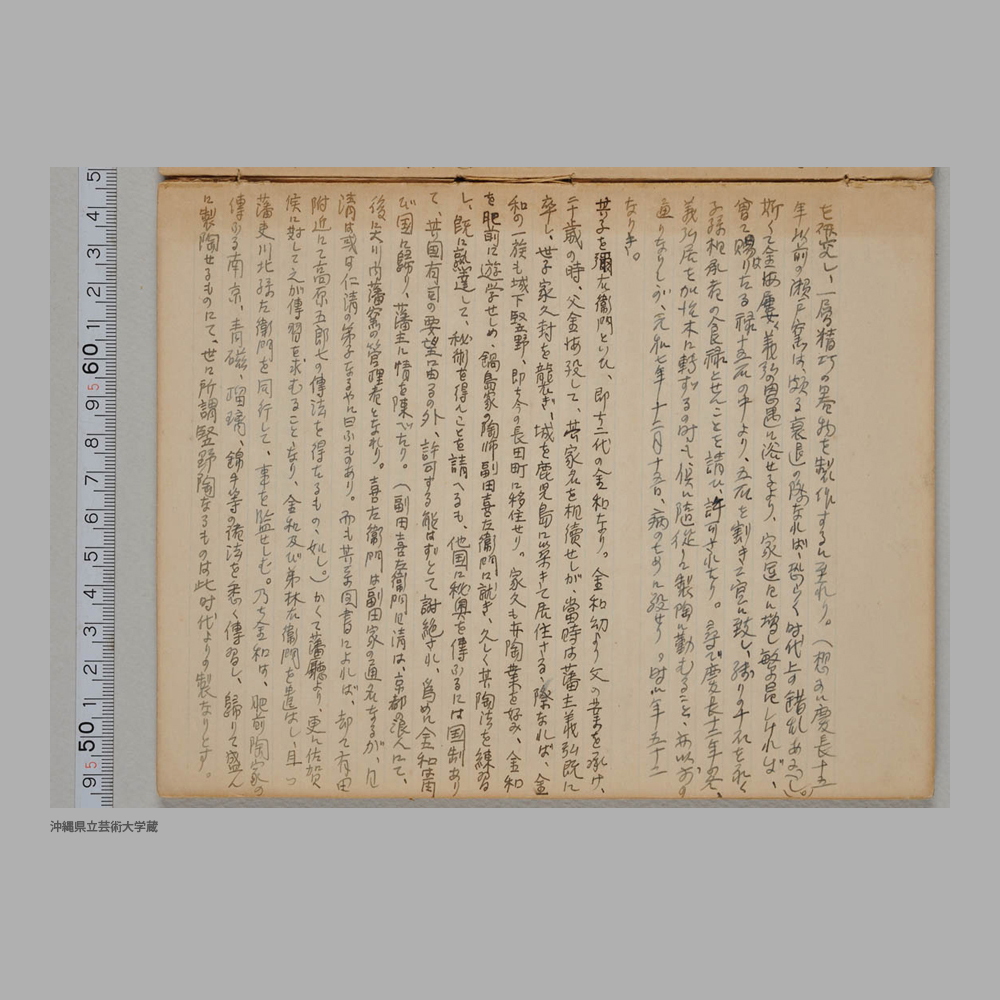 を研究し、一層精巧の器物を製作するに至れり。(想ふに慶長十五
年以前の瀬戸窯は頗る衰退の際なれば、恐らく時代上の錯乱あるべし。)
斯くて金海屢々義弘の恩遇に浴せしより、家運左に増し繁昌しければ、
曾て賜はりたる禄十五石の中より、五石を割きて官に致し、残りの十石を永く
子孫相承者の食禄とせんことを請ひ、許可されたり。尋で慶長十二年冬、
義弘居を加治木に転ずる時も侯に随従して製陶に勤むること、亦以前の
通りなりしが、元和七年十二月十五日、病のために歿せり。時に年五十二
なりき。
其子を彌右衛門といひ、即ち二代の金和なり。金和幼より父の業を承け、
二十歳の時、父金海歿して、其家名を相續せしが、當時は藩主義弘既に
卒し、世子家久封を襲ぎ、城を鹿児島に築きて居住さるる際なれば、金
和の一族も城下竪野、即ち今の長田町に移住せり。家久も亦陶業を好み、金和
を肥前に遊学せしめ、鍋島家の陶師副田喜左衛門に就き、久しく其陶法を練習
し、既に熟達して、秘術を得んことを請へるも、他国に秘奥を傳ふるには国制あり
て、其国有司の要望に由るの外、許可する能はずとて謝絶され、為めに金和空し
く国に歸り、藩主に情を陳べたり。(副田喜左衛門日清は、京都の浪人にて、
後に大川内藩窯の管理者となれり。喜左衛門は副田家の通名なるが、日
清は或は仁清の弟子なるやに曰ふものあり。而も其系図書によれば、却て有田
附近にて高原五郎七の傳法を得たるものゝ如し。)かくて藩廳より、更に佐賀
侯に対して之が傳習を求むることなり、金和及び弟林右衛門を遣はし、且つ
藩吏川北緑左衛門を同行して、事を監せしむ。乃ち金和は、肥前陶家の
傳ふる南京、青磁、瑠璃、錦手等の諸法を悉く傳習し、歸りて盛ん
に製陶せるものにて、世に所謂竪野陶なるものは此時代よりの製なりとす。
5 4 3 2 1 60 9 8 7 6 5 4 3 2 1 50 9
沖縄県立芸術大学蔵